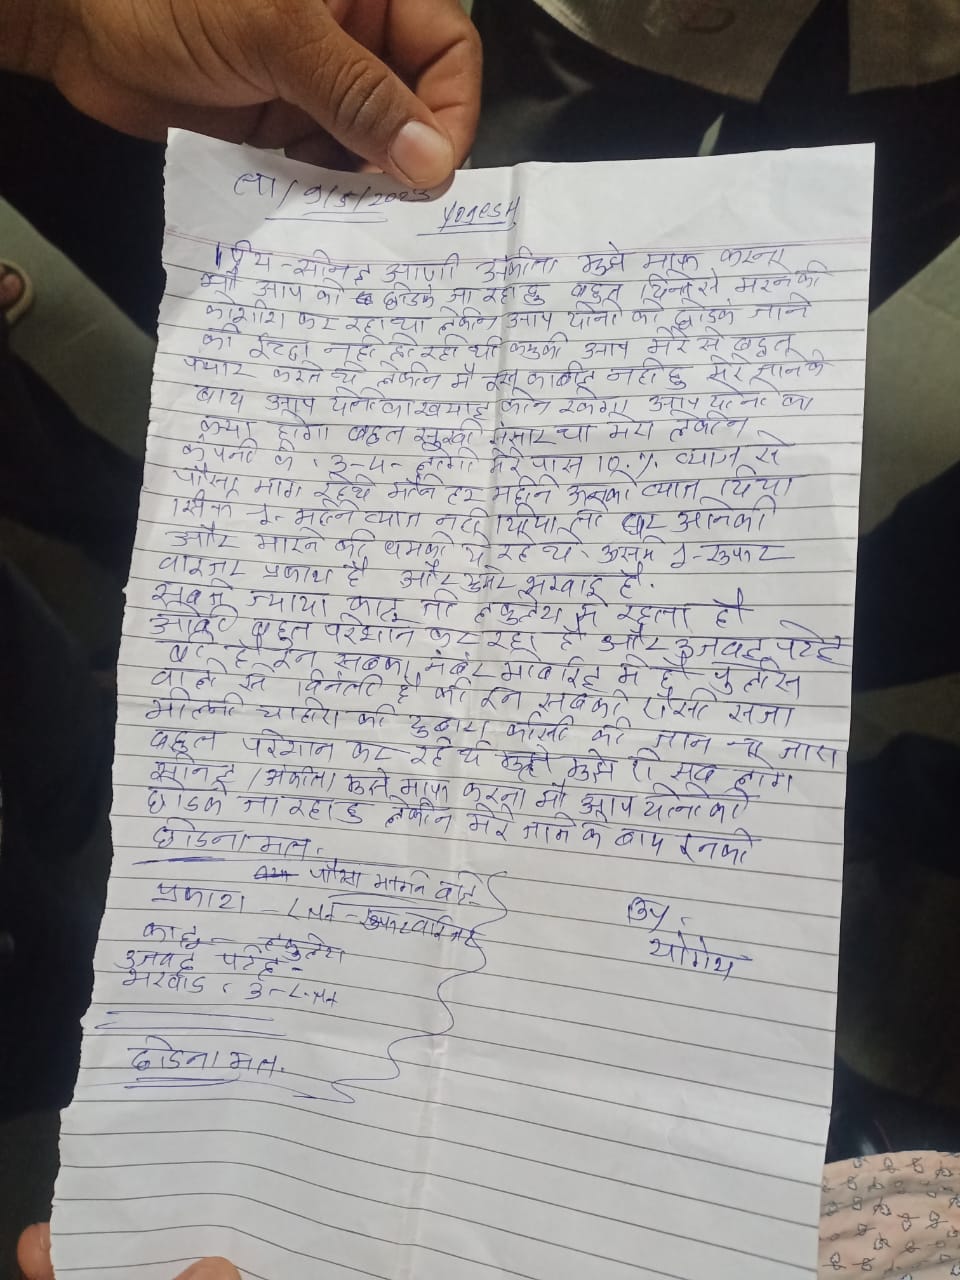 ता/9/5/2023
Yogesh
प्रिय - स्नेह आणी अंकीता मुझे माफ करना
मौ आप को छोडके जा रहा हु बहुत दिनो से मरनेकी
कोशीश कर रहा था लेकीन आप दोनो को छोडके जाने
की इच्छा नही हो रही थी कयुकी आप मेरे से बहुत
प्यार करते थे लेकीन मै इस काबील नही हु मेरे जानेके
बाद आप दोनोका खयाल कौन रखेगा आप दोनो का
क्या होगा बहुत सुखी संसार था मेरा लेकीन
कंपनी के 3-4- लोगो मेरे पास 10% व्याज से
पौसा माग रहेथे मैने हर महीने उसको व्याज दिया
सिर्फ 1- महीने व्याज नही दिया तो घर आनेकी
और मारने की धमकी दे रहे थे. उसमे 1-
प्रकाश है और भरवाड है.
सबसे ज्यादा कालु जो रहता है
बहुत परेशान कर रहा है और
है इन सबका नंबर मोबाईल मे है पुलीस
वालो से विनंती है की इन सबको ऐसी सजा
मीलनी चाहीए की दुबारा कीसी की जान ना जाए
बहुत परेशान कर रहे थे मुझे ये सब लोग
स्नेह /अंकीता मुझे माफ करना मौ आप दोनोको
छोडके जा रहा हु लेकीन मेरे जाने के बाद इनको
छोडना मत.
पौसा मागने वाले
प्रकाश -
कालु -
भरवाड
By.
योगेश
छोडना मत.